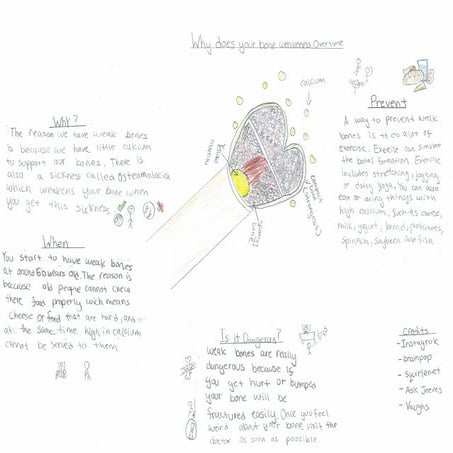 Why does your bone weakened Overtime
calcium
Why?
The reason we have weak bones
is because we have little calcium
to support our bones. There is
also a sickness called Osteomalacia
which weakens your bone when
you get this sickness
Prevent
A way to prevent weak
bones is to do alot of
exercise. Exercise can
the bonal formation. Exercise
includes stretching, jogging
or doing yoga. You can also
eat or drink things with
high calcium, such as cheese,
milk, yogurt, bread, potatoes,
spinach, soybean and fish
Yellow
marrow
spongy
bone
compact
When
You start to have weak bones
at around 60 years old. The reason is
because old people cannot chew
there food properly wich means
cheese or food that are hard, and
at the same time high in calcium
cannot be served to them
Is it Dangerous?
Weak bones are really
dangerous because is
you get hurt or bumped
your bone will be
fractures easily. Once you feel
weird about your bone visit the
doctor as soon as possible.
credits
- Instagrok
- brainpop
- Squirlenet
- Ask Jeeves
- Vaughs